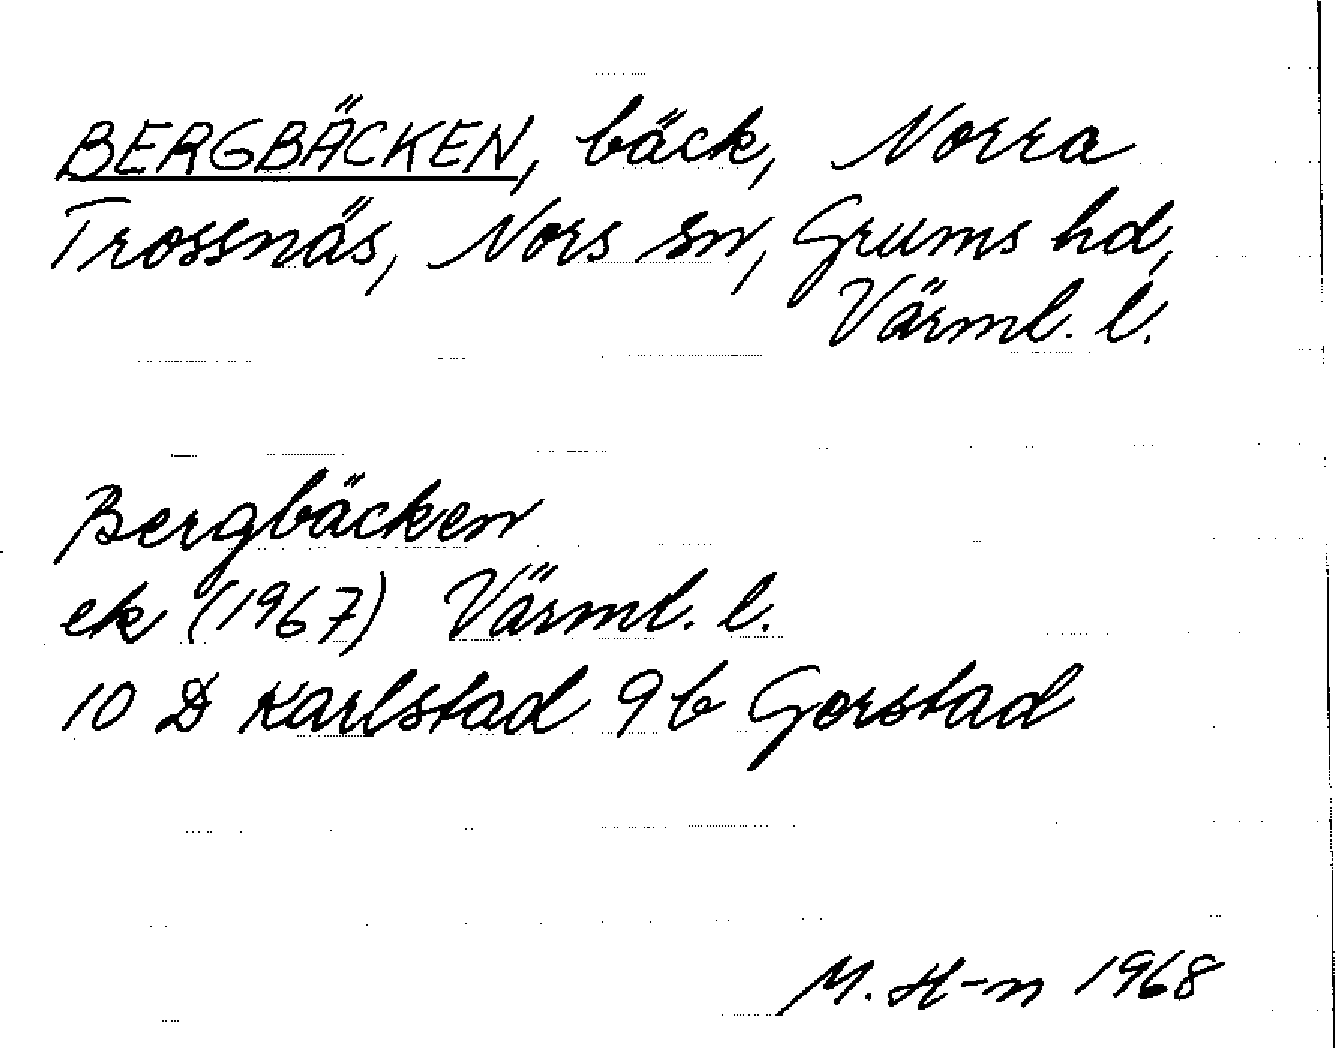 BERGBÄCKEN, bäck, Norra
Trossnäs, Nors sn, Grums hd,
Värml. l.
Bergbäcken
ek (1967) Värml. l.
10 D Karlstad 9 b Gorstad
M. H-n 1968